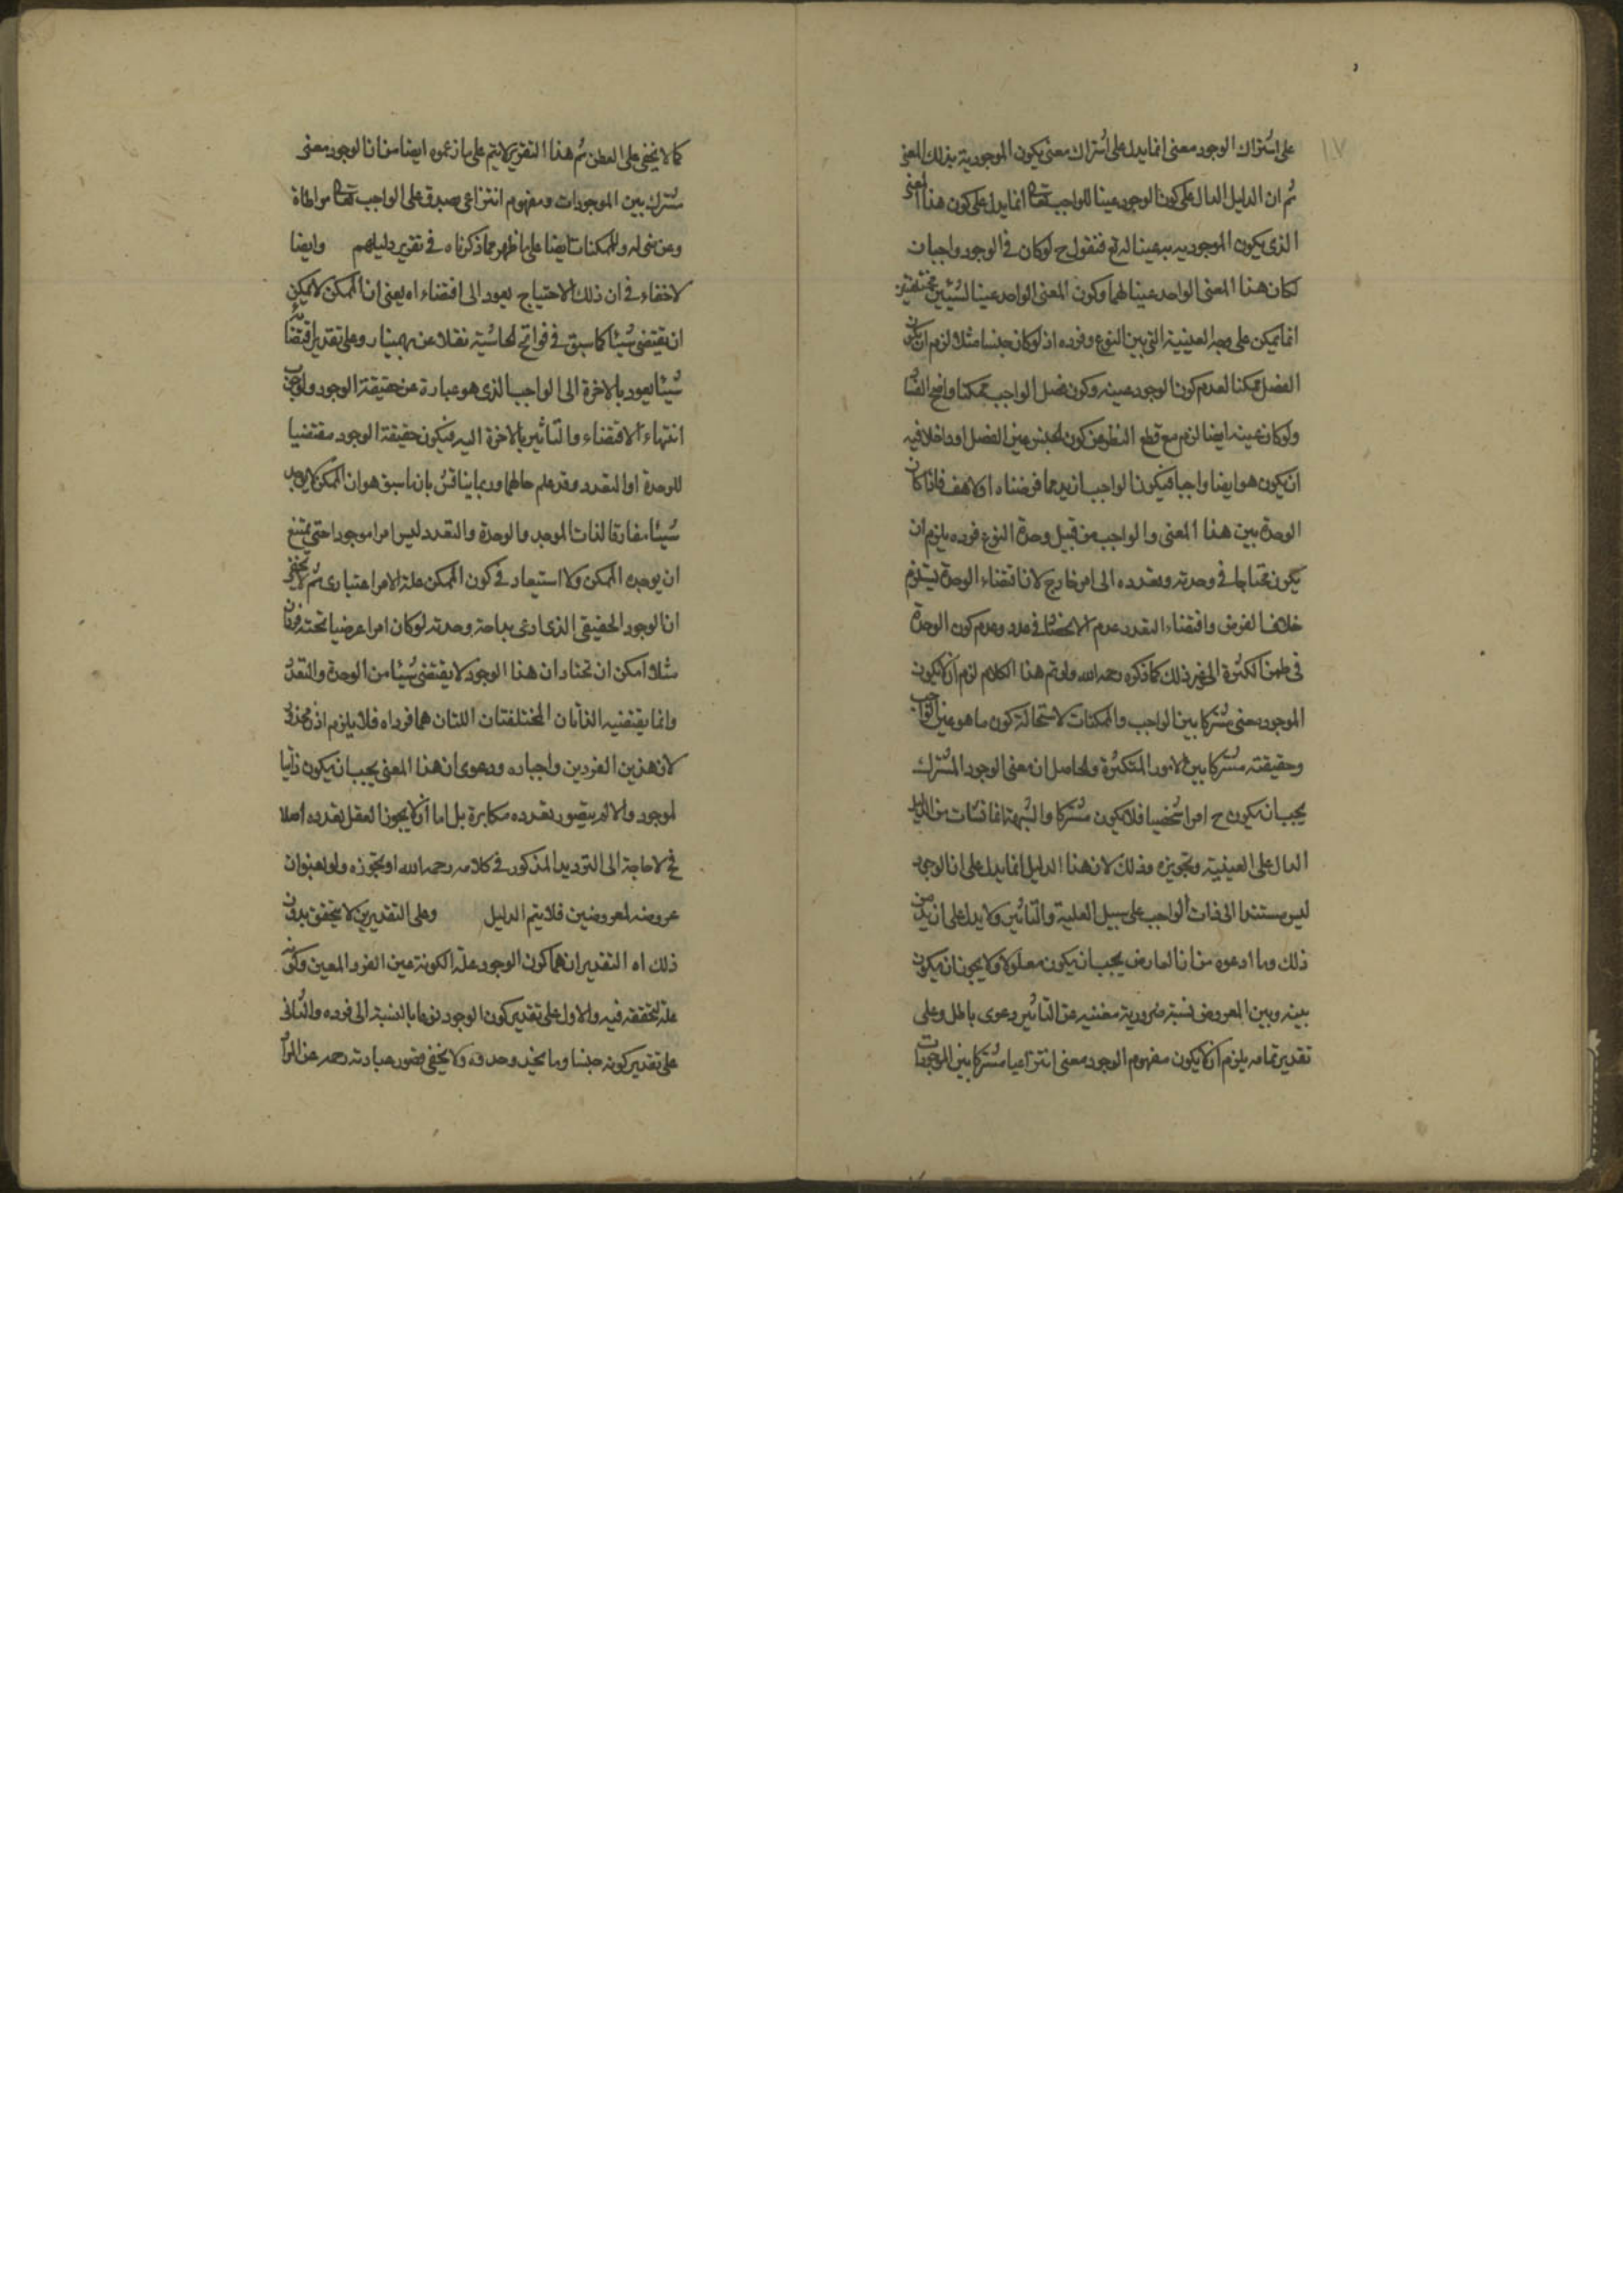 ١٧
على اشتراك الوجود معنى انما يدل على اشتراك معنى يكون الموجودية بذلك المعنى
ثم ان الدليل الدال على كون الوجود عينا للواجب تعالى انما يدل على كون هذا المعنى
الذى يكون الموجودية به عينا له تع فنقول ح لو كان فى الوجود واجبان
لكان هذا المعنى الواحد عينا لهما وكون المعنى الواحد عينا لشيئين مختلفين
انما يمكن على العينية التى بين النوع وفرده اذ لو كان جنسا مثلا لزم ان يكون
الفصل ممكنا لعدم كون الوجود عينه وكون فصل الواجب ممكنا واضح الفساد
ولو كان عينه ايضا لزم مع قطع النظر عن كون الجنس عين الفصل او داخلا فيه
ان يكون هو ايضا واجبا فيكون الواجب ازيد مما فرضناه اولا هف فاذا كان
الوحدة بين هذا المعنى والواجب من قبيل وحدة النوع فرده يلزم ان
يكون محتاجا فى وحدته وتعدده الى امر خارج لان اقتضاء الوحدة يستلزم
خلاف الفرض واقتضاء التعدد عدم الانحصار فى عدد وعدم كون الوحدة
فى ضمن الكثرة الى غير ذلك كما ذكره رحمه الله ولو تم هذا الكلام لزم ان لا يكون
الموجود معنى مشتركا بين الواجب والممكنات لاستحالة كون ما هو عين الواجب
وحقيقته مشتركا بين الامور المتكثرة والحاصل ان معنى الوجود المشترك
يجب ان يكون ح امرا شخصيا فلا يكون مشتركا والشبهة انما نشات من الدليل
الدال على العينية وتجويزه وذلك لان هذا الدليل انما يدل على ان الوجود
ليس مستندا الى ذات الواجب على سبيل العلية والتاثير ولا يدل على ازيد من
ذلك وما ادعوه من ان العارض يجب ان يكون معلولا ولا يجوز ان يكون
بينه وبين المعروض نسبة ضرورية مغنيه عن التاثير دعوى باطل وعلى
تقدير تمامه يلزم ان لا يكون مفهوم الوجود معنى انتزاعيا مشتركا بين الموجودات
كما لا يخفى على الفطن ثم هذا التقرير لا يتم على ما زعموه ايضا من ان الوجود معنى
مشترك بين الموجودات ومفهوم انتزاعى صدق على الواجب تعالى مواطاة
وعرضى له وللممكنات ايضا على ما ظهر مما ذكرناه فى تقرير دليلهم وايضا
لا خفاء فى ان ذلك الاحتياج يعود الى اقتضاء اه يعنى ان الممكن لا يمكن
ان يقتضى شيئا كما سبق فى فواتح الحاشية نقلا عن بهمنيار وعلى تقدير اقتضائه
شيئا يعود بالاخرة الى الواجب الذى هو عبارة عن حقيقة الوجود ولوجوب
انتهاء الاقتضاء والتاثير بالاخرة اليه فيكون حقيقة الوجود مقتضيا
للوحدة او التعدد وقد علم حالهما وربما يناقش بان ما سبق هو ان الممكن لا يوجد
شيئا مفارقا لذات الموجد والوحدة والتعدد ليس امرا موجودا حتى يمتنع
ان يوجده الممكن ولا استبعاد فى كون الممكن علة لامر اعتبارى ثم لا يخفى
ان الوجود الحقيقى الذى ادعى بداهة وحدته لو كان امرا عرضيا تحته فردان
مثلا امكن ان نختار ان هذا الوجود لا يقتضى شيئا من الوحدة والتعدد
وانما يقتضيه الذاتان المختلفتان اللتان هما فرداه فلا يلزم اذن محذور
لان هذين الفردين واجبان ودعوى ان هذا المعنى يجب ان يكون ذاتيا
لموجود والا لم يتصور تعدده مكابرة بل اما ان لا يجوز العقل تعدده اصلا
فح لا حاجة الى الترديد المذكور فى كلامه رحمه الله او يجوزه ولو بعنوان
عروضه لمعروضين فلا يتم الدليل وعلى التقديرين لا يتحقق بدون
ذلك اه التقديران هما كون الوجود علة لكونه عين الفرد المعين وكونه
علة لتحققه فيه والاول على تقدير كون الوجود نوعا بالنسبة الى فرده والثانى
على تقدير كونه جنسا وما ولا يخفى قصور عبارته رحمه عن المراد